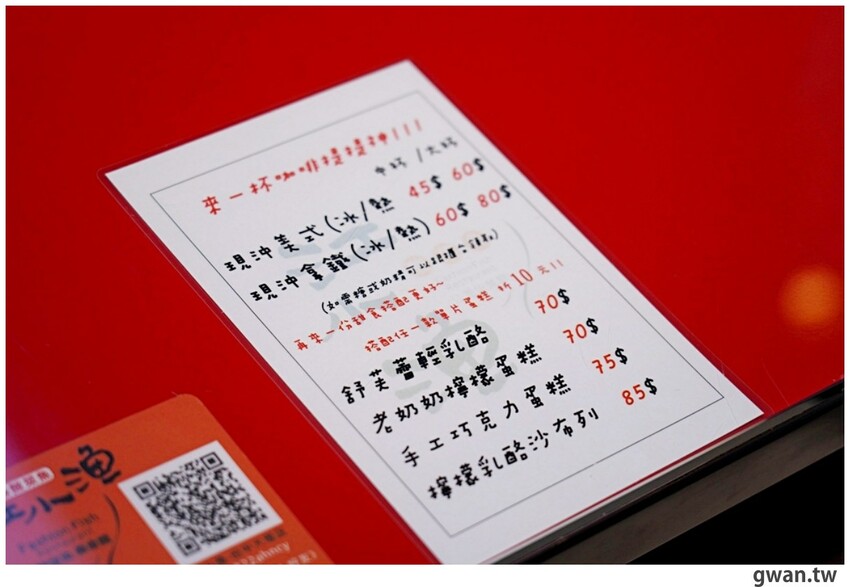 來一杯咖啡提提神!!!
中杯 / 大杯
現沖美式(冰/熱 45$ 60$
現沖拿鐵(冰/熱) 60$ 80$
(如需糖或奶精可以跟櫃台領取)
再來一份甜食搭配更好~
搭配任一款單片蛋糕 折10元!!
舒芙蕾輕乳酪 70$
老奶奶檸檬蛋糕 70$
手工巧克力蛋糕 75$
檸檬乳酪沙布列 85$
小漁
Fashion Fish
gwan.tw